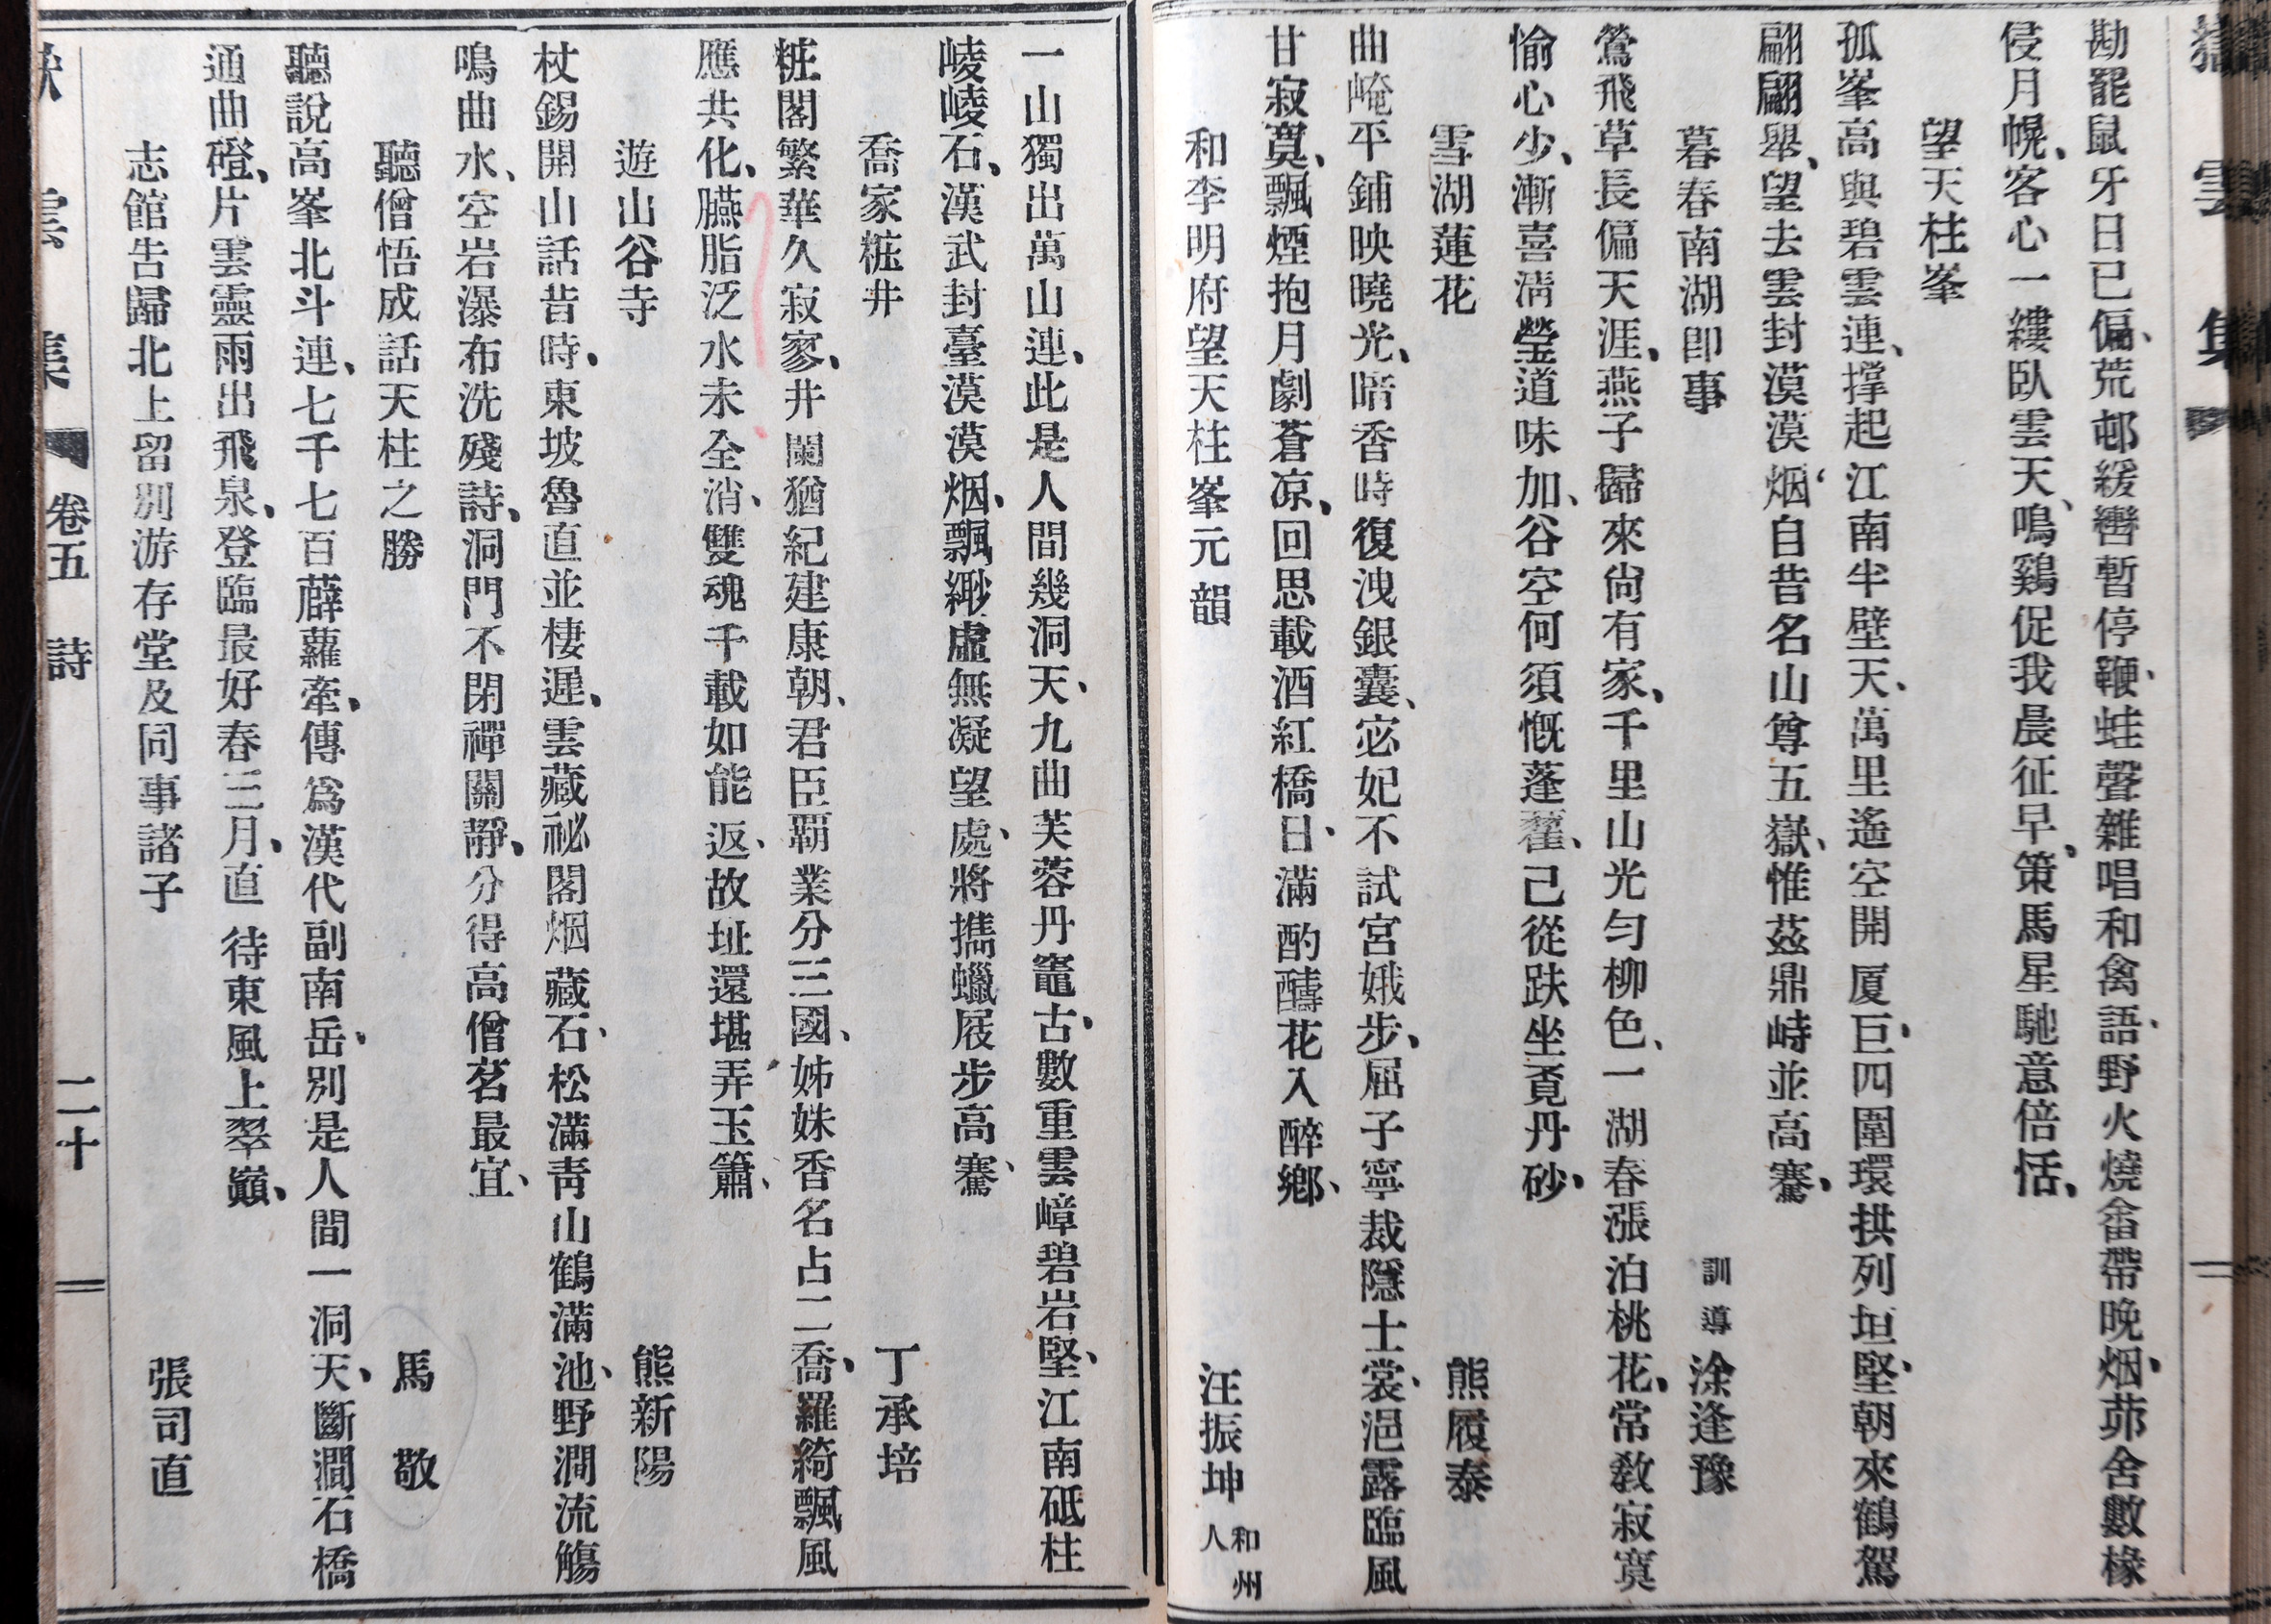 勘罷鼠牙日已偏、荒邨緩轡暫停鞭、蛙聲雜唱和禽語、野火燒畬帶晚烟、茆舍數椽
侵月幌、客心一縷臥雲天、鳴鷄促我晨征早、策馬星馳意倍恬、
望天柱峯
孤峯高與碧雲連、撐起江南半壁天、萬里遙空開厦巨、四圍環拱列垣堅、朝來鶴駕
翩翩舉、望去雲封漠漠烟、自昔名山尊五嶽、惟茲鼎峙並高騫、
暮春南湖卽事 訓導涂逢豫
鶯飛草長偏天涯、燕子歸來尙有家、千里山光勻柳色、一湖春漲泊桃花、常敎寂寞
愉心少、漸喜淸瑩道味加、谷空何須慨蓬藋、己從趺坐覓丹砂、
雪湖蓮花 熊履泰
曲崦平鋪映曉光、暗香時復洩銀囊、宓妃不試宮娥步、屈子寧裁隱士裳、浥露臨風
甘寂寞、飄煙抱月劇蒼凉、回思載酒紅橋日、滿酌醻花入醉鄉、
和李明府望天柱峯元韻 汪振坤 和州人
一山獨出萬山連、此是人間幾洞天、九曲芙蓉丹竈古、數重雲嶂碧岩堅、江南砥柱
崚崚石、漢武封臺漠漠烟、飄緲虛無凝望處、將攜蠟屐步高騫、
喬家粧井 丁承培
粧閣繁華久寂寥、井闌猶紀建康朝、君臣覇業分三國、姊妹香名占二喬、羅綺飄風
應共化、臙脂泛水未全消、雙魂千載如能返、故址還堪弄玉簫、
遊山谷寺 熊新陽
杖錫開山話昔時、東坡魯直並棲遲、雲藏祕閣烟藏石、松滿靑山鶴滿池、野澗流觴
鳴曲水、空岩瀑布洗殘詩、洞門不閉禪關靜、分得高僧茗最宜、
聽僧悟成話天柱之勝 馬敬
聽說高峯北斗連、七千七百薜蘿牽、傳爲漢代副南岳、別是人間一洞天、斷澗石橋
通曲磴、片雲靈雨出飛泉、登臨最好春三月、直待東風上翠巔、
志館告歸北上留別游存堂及同事諸子 張司直
雲集 卷五 詩 二十